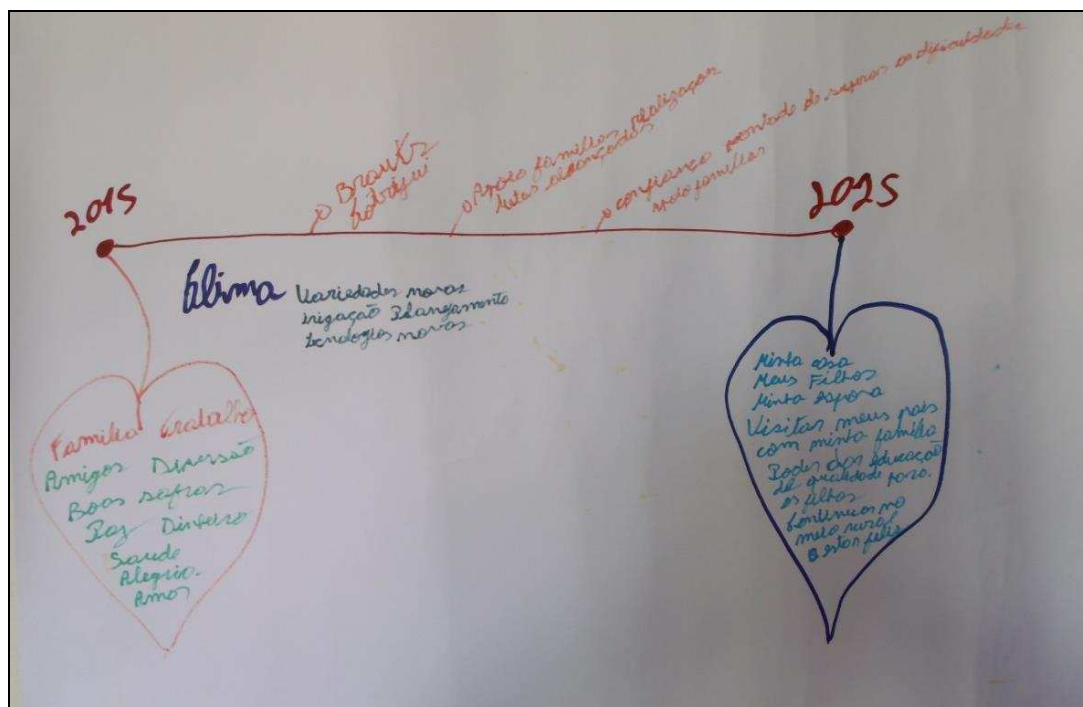 2015
o Apoio familias realizaçar
metas alcançadas
o confiança vontade de superar as dificuldades
apoio familias
2025
Clima
Variedades novas
irigação Planejamento
tecnologias novas
Familia trabalho
Amigos Diversão
Boas safras
Paz Dinheiro
Saude
Alegria.
Amor
Minha casa
Meus Filhos
Minha Espora
Visitar meus pais
com minha familia
Poder dar educação
de qualidade para.
os filhos
Continuar no
meio rural
e estar feliz